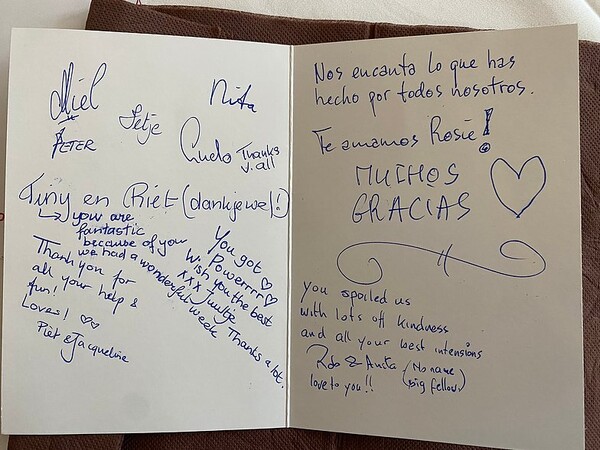 Miel
Nita
Jetje
PETER
Gudo Thanks
y. all
Tiny en Riet (dankjewel!)
you are
fantastic
because of you
we had a wonderful week
You got
Powerrrr
Wish you the best
xxx Juultje
Thanks a lot.
Thank you for
all your help &
fun!
Loves!
Piet & Jacqueline
Nos encanta lo que has
hecho por todos nosotros.
Te amamos Rosie!
MUCHOS
GRACIAS
you spoiled us
with lots off kindness
and all your best intensions
Rob & Anita (No name
big fellow)
love to you!!